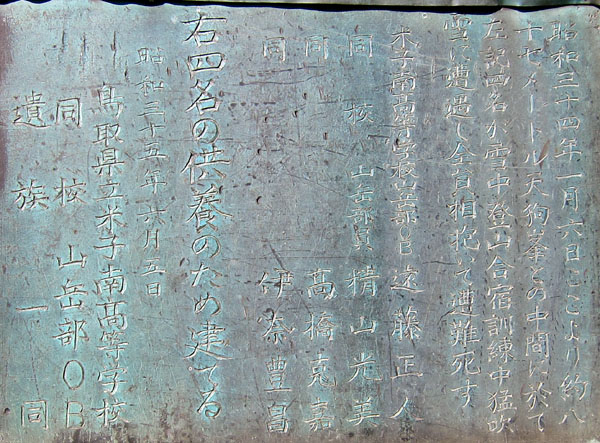 昭和三十四年一月六日ここより約八
十七メートル天狗峯との中間に於て
左記四名が雪中登山合宿訓練中猛吹
雪に遭遇し全員相抱いて遭難死す
米子南高等学校山岳部OB 遠藤正人
同校山岳部員 精山光美
同 高橋克嘉
同 伊泰豊昌
右四名の供養のため建てる
昭和三十五年六月五日
鳥取県立米子南高等学校
同校山岳部OB
遺族一同